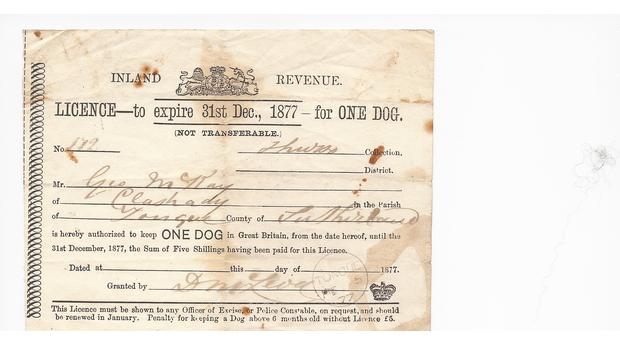 INLAND REVENUE.
LICENCE—to expire 31st Dec., 1877—for ONE DOG.
(NOT TRANSFERABLE.)
No. Collection.
District.
Mr. Geo McKay
of in the Parish
of Tongue County of Sutherland
is hereby authorized to keep ONE DOG in Great Britain, from the date hereof, until the
31st December, 1877, the Sum of Five Shillings having been paid for this Licence.
Dated at this day of 1877.
Granted by
TONGUE
77
This Licence must be shown to any Officer of Excise, or Police Constable, on request, and should
be renewed in January. Penalty for keeping a Dog above 6 months old without Licence £5.